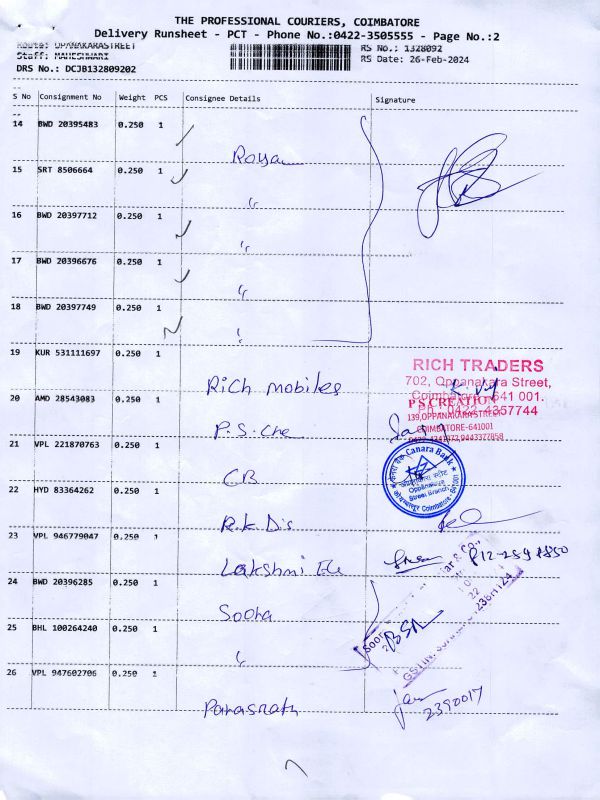 THE PROFESSIONAL COURIERS, COIMBATORE
Delivery Runsheet - PCT - Phone No.:0422-3505555 - Page No.:2
Route: OPANAKARASTREET
RS No.: 1328092
Staff: MAHESHWARI
RS Date: 26-Feb-2024
DRS No.: DCJB132809202
S No Consignment No Weight PCS Consignee Details Signature
14 BWD 20395483 0.250 1
15 SRT 8506664 0.250 1
"
16 BWD 20397712 0.250 1
"
17 BWD 20396676 0.250 1
"
18 BWD 20397749 0.250 1
"
19 KUR 531111697 0.250 1
Rich mobiles
RICH TRADERS
702, Oppanakara Street,
Coimbatore - 641 001.
Ph : 0422-4357744
20 AMD 28543083 0.250 1
P.S. Cre
P S CREATION
139,OPPANAKARA STREET
COIMBATORE-641001
21 VPL 221870763 0.250 1
CB
Canara Bank
Oppanakara
Street Branch
Coimbatore - 641001
22 HYD 83364262 0.250 1
R.K Dis
23 VPL 946779047 0.250 1
Lakshmi Ele
24 BWD 20396285 0.250 1
Sooha
25 BHL 100264240 0.250 1
"
26 VPL 947602706 0.250 1
Parasnath
2390017